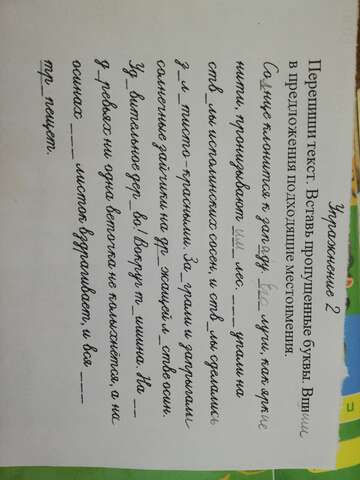 Упражнение 2
Перепиши текст. Вставь пропущенные буквы. Впиши
в предложения подходящие местоимения.
Со_нце клонится к западу. Его лучи, как яркие
нити, пронизывают им_ лес. ____ упали на
ств_лы исполинских сосен, и ств_лы сделались
з_л_тисто-красными. За_грали и запрыгали
солнечные зайчики на др_жащей л_стве осин.
Уд_вительное дер_во! Вокруг т_ишина. На __
д_ревьях ни одна веточка не колыхнётся, а на
осинах ____ листок вздрагивает, и вся ___
тр_пещет.